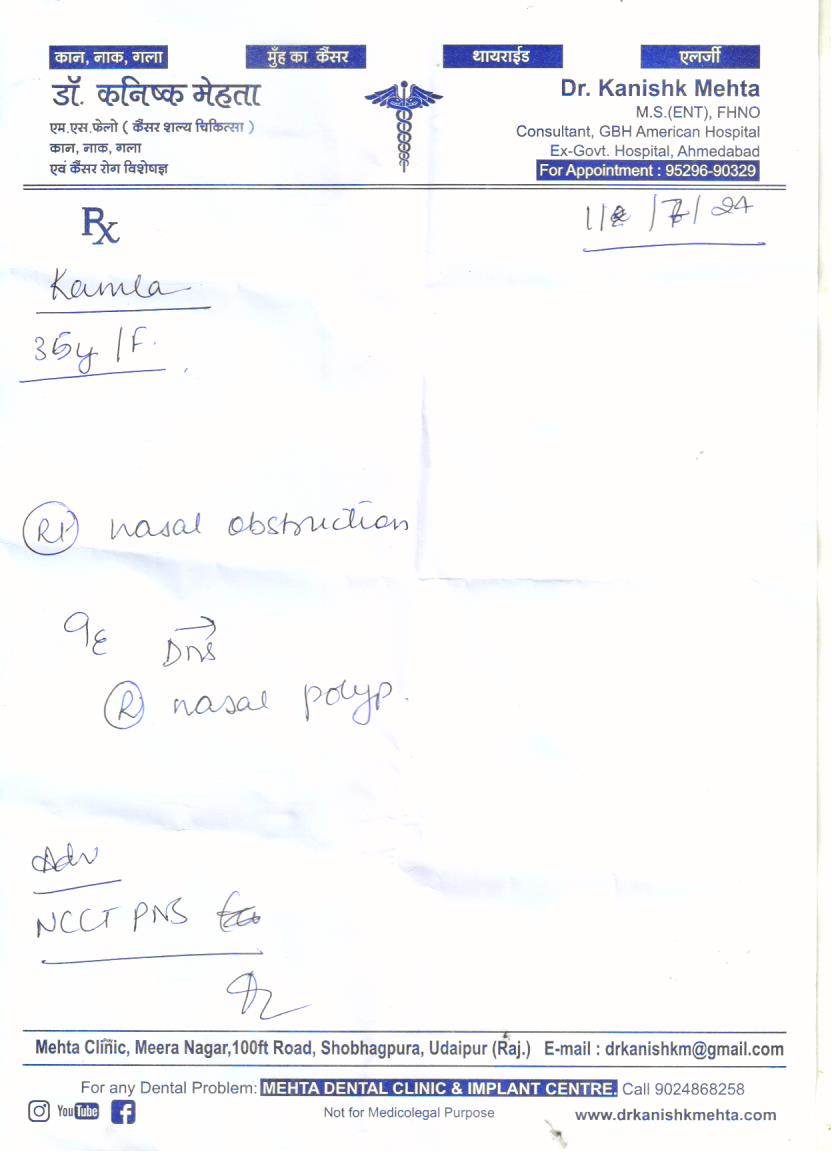 कान, नाक, गला
मुँह का कैंसर
थायराईड
एलर्जी
डॉ. कनिष्क मेहता
एम.एस.फेलो ( कैंसर शल्य चिकित्सा )
कान, नाक, गला
एवं कैंसर रोग विशेषज्ञ
Dr. Kanishk Mehta
M.S.(ENT), FHNO
Consultant, GBH American Hospital
Ex-Govt. Hospital, Ahmedabad
For Appointment : 95296-90329
Rx
/7/24
Kamla
36y/F.
nasal obstruction
DNS
R nasal polyp.
Adv
NCCT PNS
Mehta Clinic, Meera Nagar,100ft Road, Shobhagpura, Udaipur (Raj.) E-mail : drkanishkm@gmail.com
For any Dental Problem: MEHTA DENTAL CLINIC & IMPLANT CENTRE. Call 9024868258
YouTube
Not for Medicolegal Purpose
www.drkanishkmehta.com